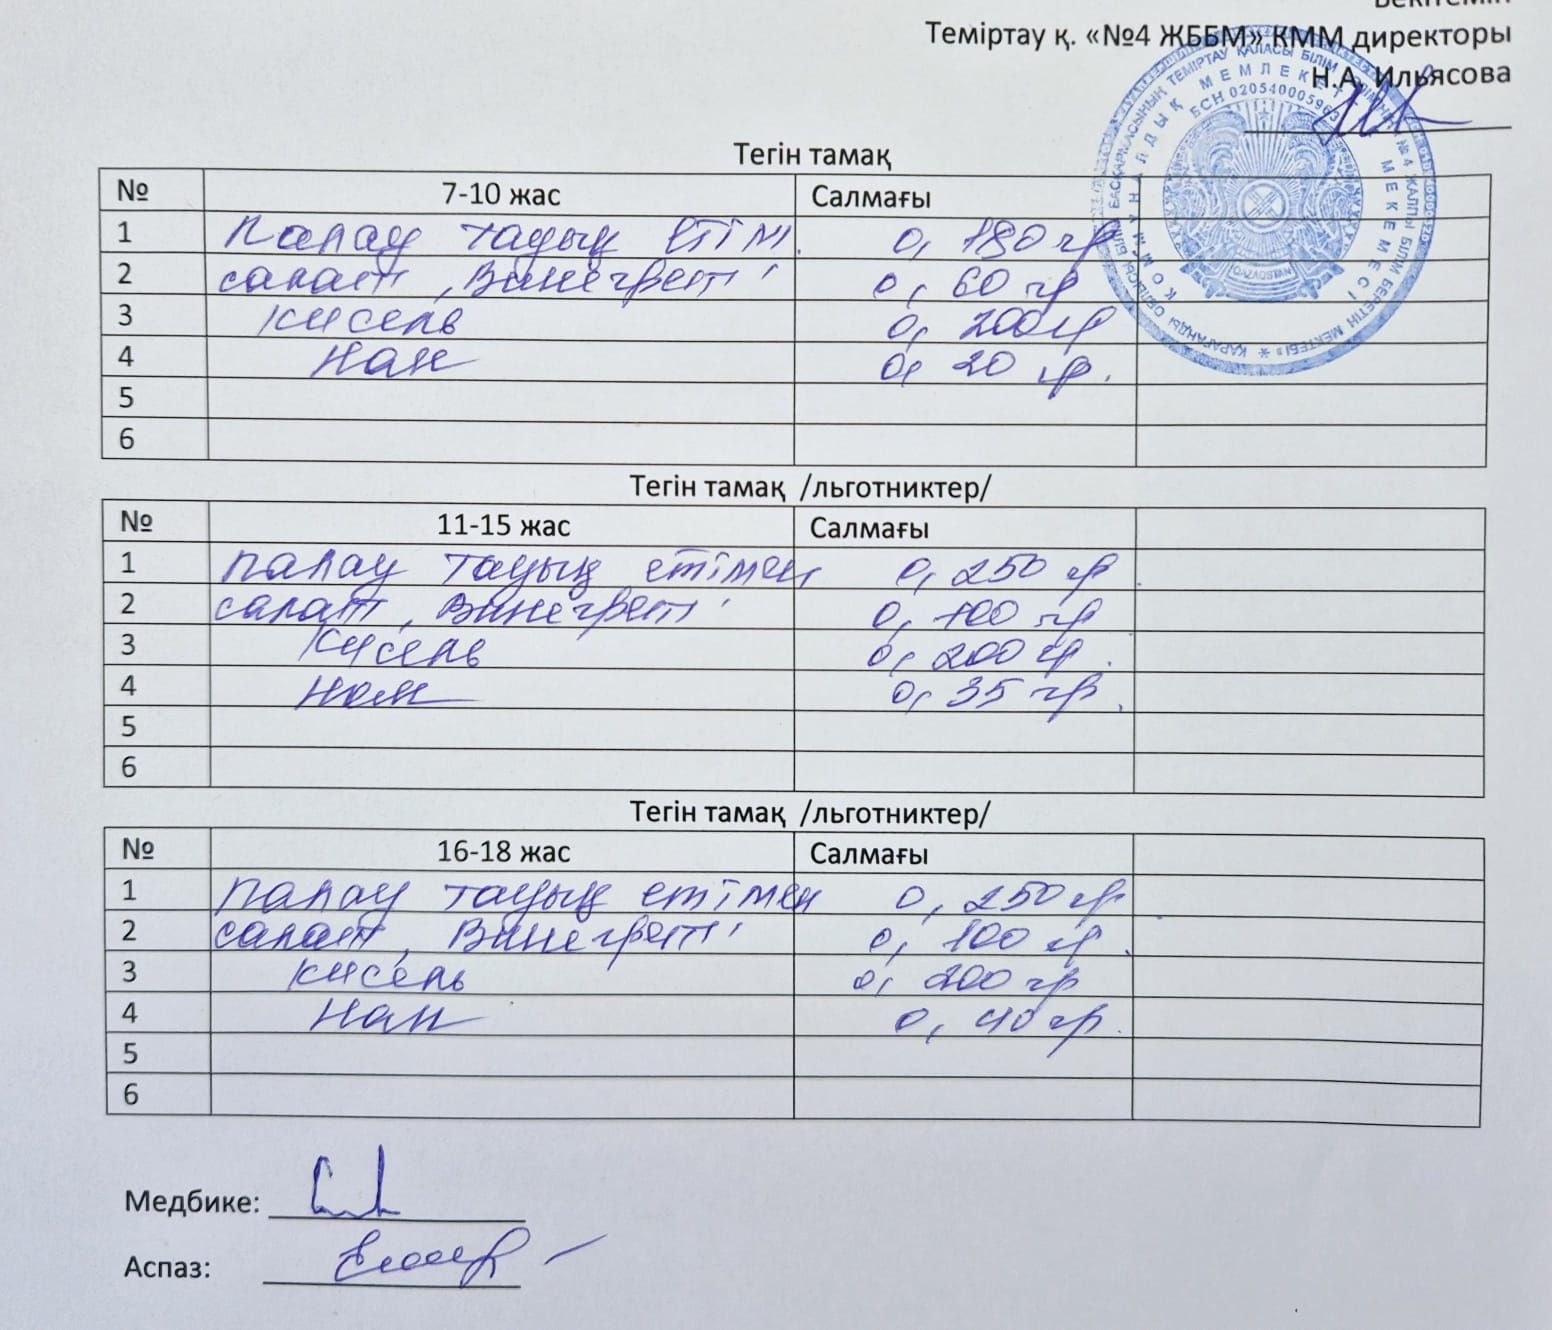 Бекітемін
Теміртау қ. «№4 ЖББМ» КММ директоры
Н.А. Ильясова
ҚАРАҒАНДЫ ОБЛЫСЫ БІЛІМ БАСҚАРМАСЫНЫҢ ТЕМІРТАУ ҚАЛАСЫ БІЛІМ БӨЛІМІНІҢ «№ 4 ЖАЛПЫ БІЛІМ БЕРЕТІН МЕКТЕБІ»
КОММУНАЛДЫҚ МЕМЛЕКЕТТІК МЕКЕМЕСІ
БСН 020540005963
QAZAQSTAN
Тегін тамақ
№ 7-10 жас Салмағы
1 палау тауық етімен 0,180 гр
2 салат „Винегрет" 0,60 гр
3 кисель 0,200 гр
4 нан 0,20 гр.
5
6
Тегін тамақ /льготниктер/
№ 11-15 жас Салмағы
1 палау тауық етімен 0,250 гр.
2 салат „Винегрет" 0,100 гр
3 кисель 0,200 гр.
4 нан 0,35 гр.
5
6
Тегін тамақ /льготниктер/
№ 16-18 жас Салмағы
1 палау тауық етімен 0,250 гр.
2 салат „Винегрет" 0,100 гр.
3 кисель 0,200 гр
4 нан 0,40 гр.
5
6
Медбике:
Аспаз: